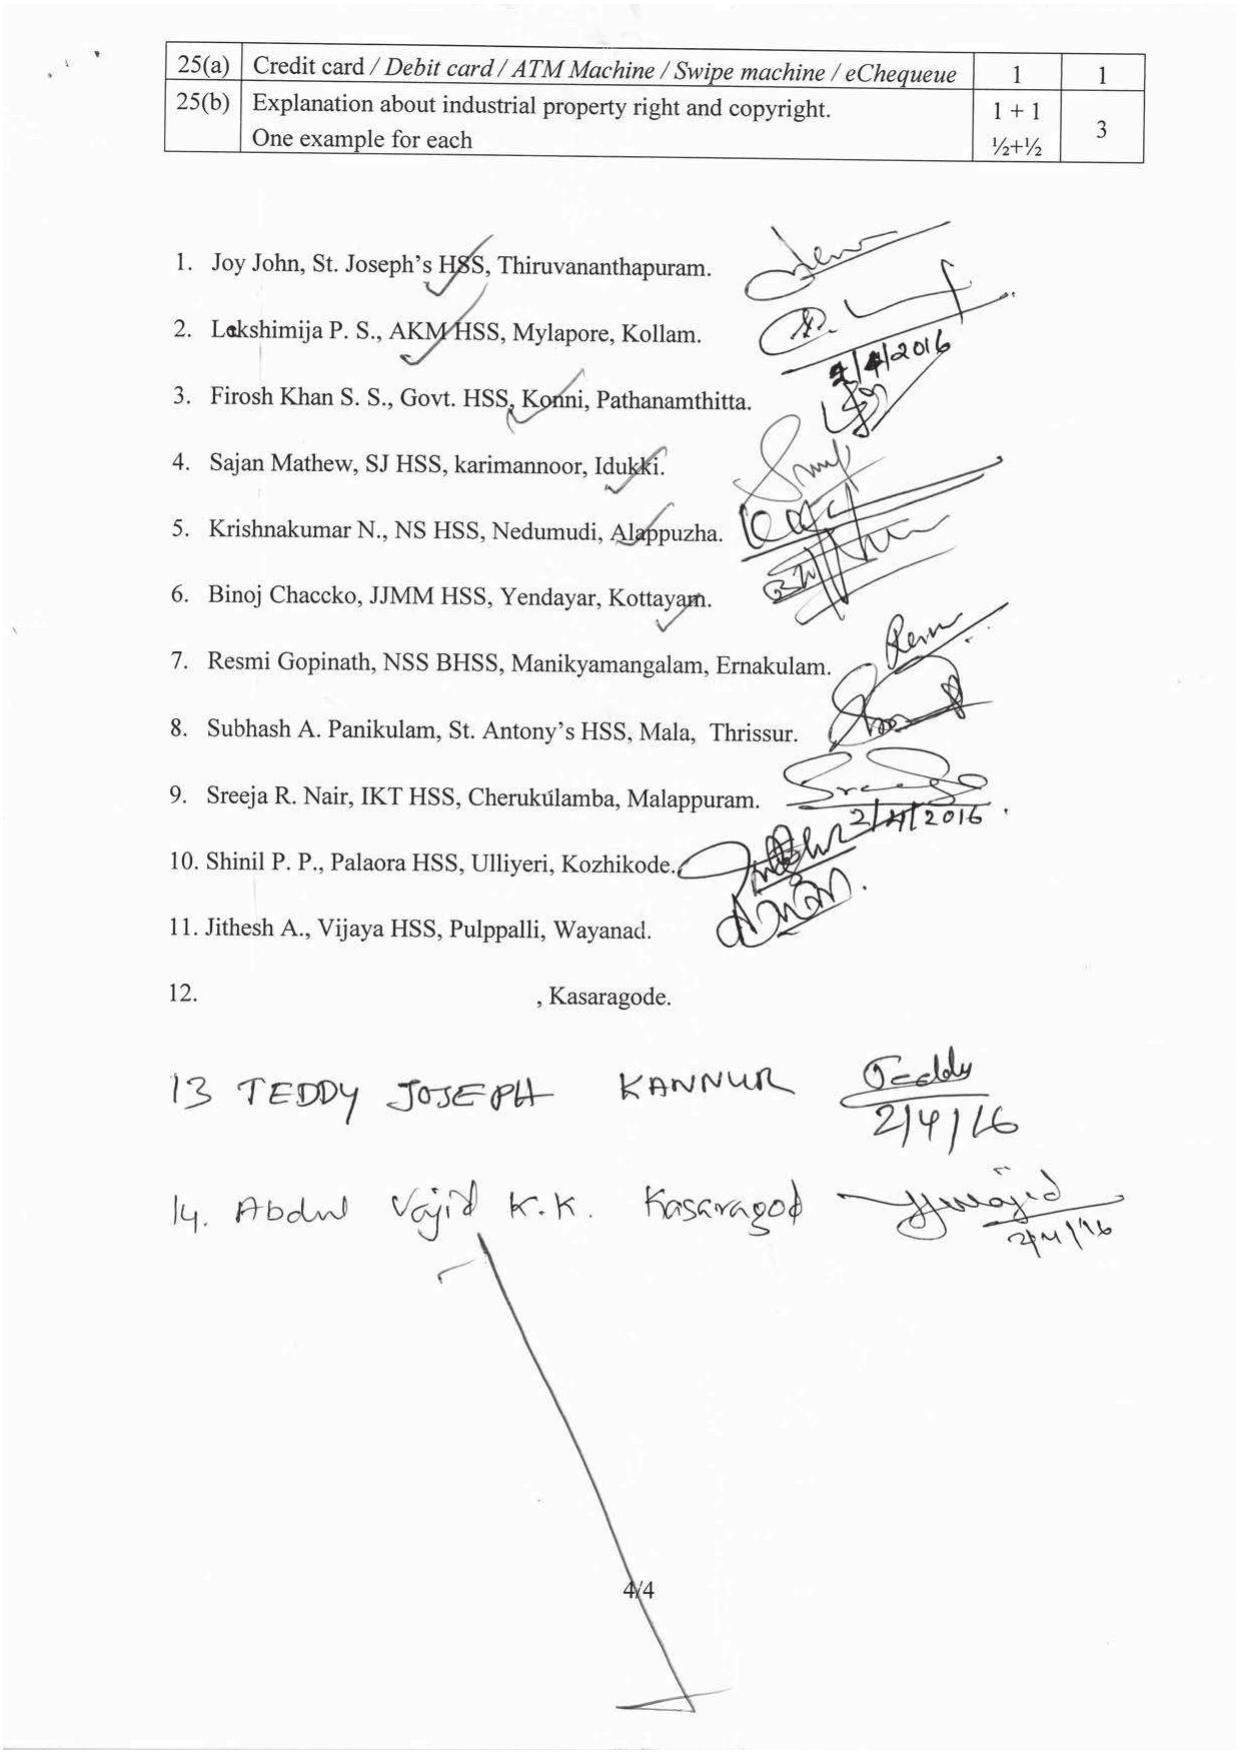 25(a) Credit card / Debit card / ATM Machine / Swipe machine / eChequeue 1 1
25(b) Explanation about industrial property right and copyright. 1 + 1 3
One example for each ½+½
1. Joy John, St. Joseph's HSS, Thiruvananthapuram.
2. Lekshimija P. S., AKM HSS, Mylapore, Kollam.
2/4/2016
3. Firosh Khan S. S., Govt. HSS, Konni, Pathanamthitta.
4. Sajan Mathew, SJ HSS, karimannoor, Idukki.
5. Krishnakumar N., NS HSS, Nedumudi, Alappuzha.
6. Binoj Chaccko, JJMM HSS, Yendayar, Kottayam.
7. Resmi Gopinath, NSS BHSS, Manikyamangalam, Ernakulam.
8. Subhash A. Panikulam, St. Antony's HSS, Mala, Thrissur.
9. Sreeja R. Nair, IKT HSS, Cherukulamba, Malappuram.
2/4/2016
10. Shinil P. P., Palaora HSS, Ulliyeri, Kozhikode.
11. Jithesh A., Vijaya HSS, Pulppalli, Wayanad.
12. , Kasaragode.
13 TEDDY JOSEPH KANNUR Teddy
2/4/16
14. Abdul Vajid K.K. Kasaragod
2/4/16
4/4